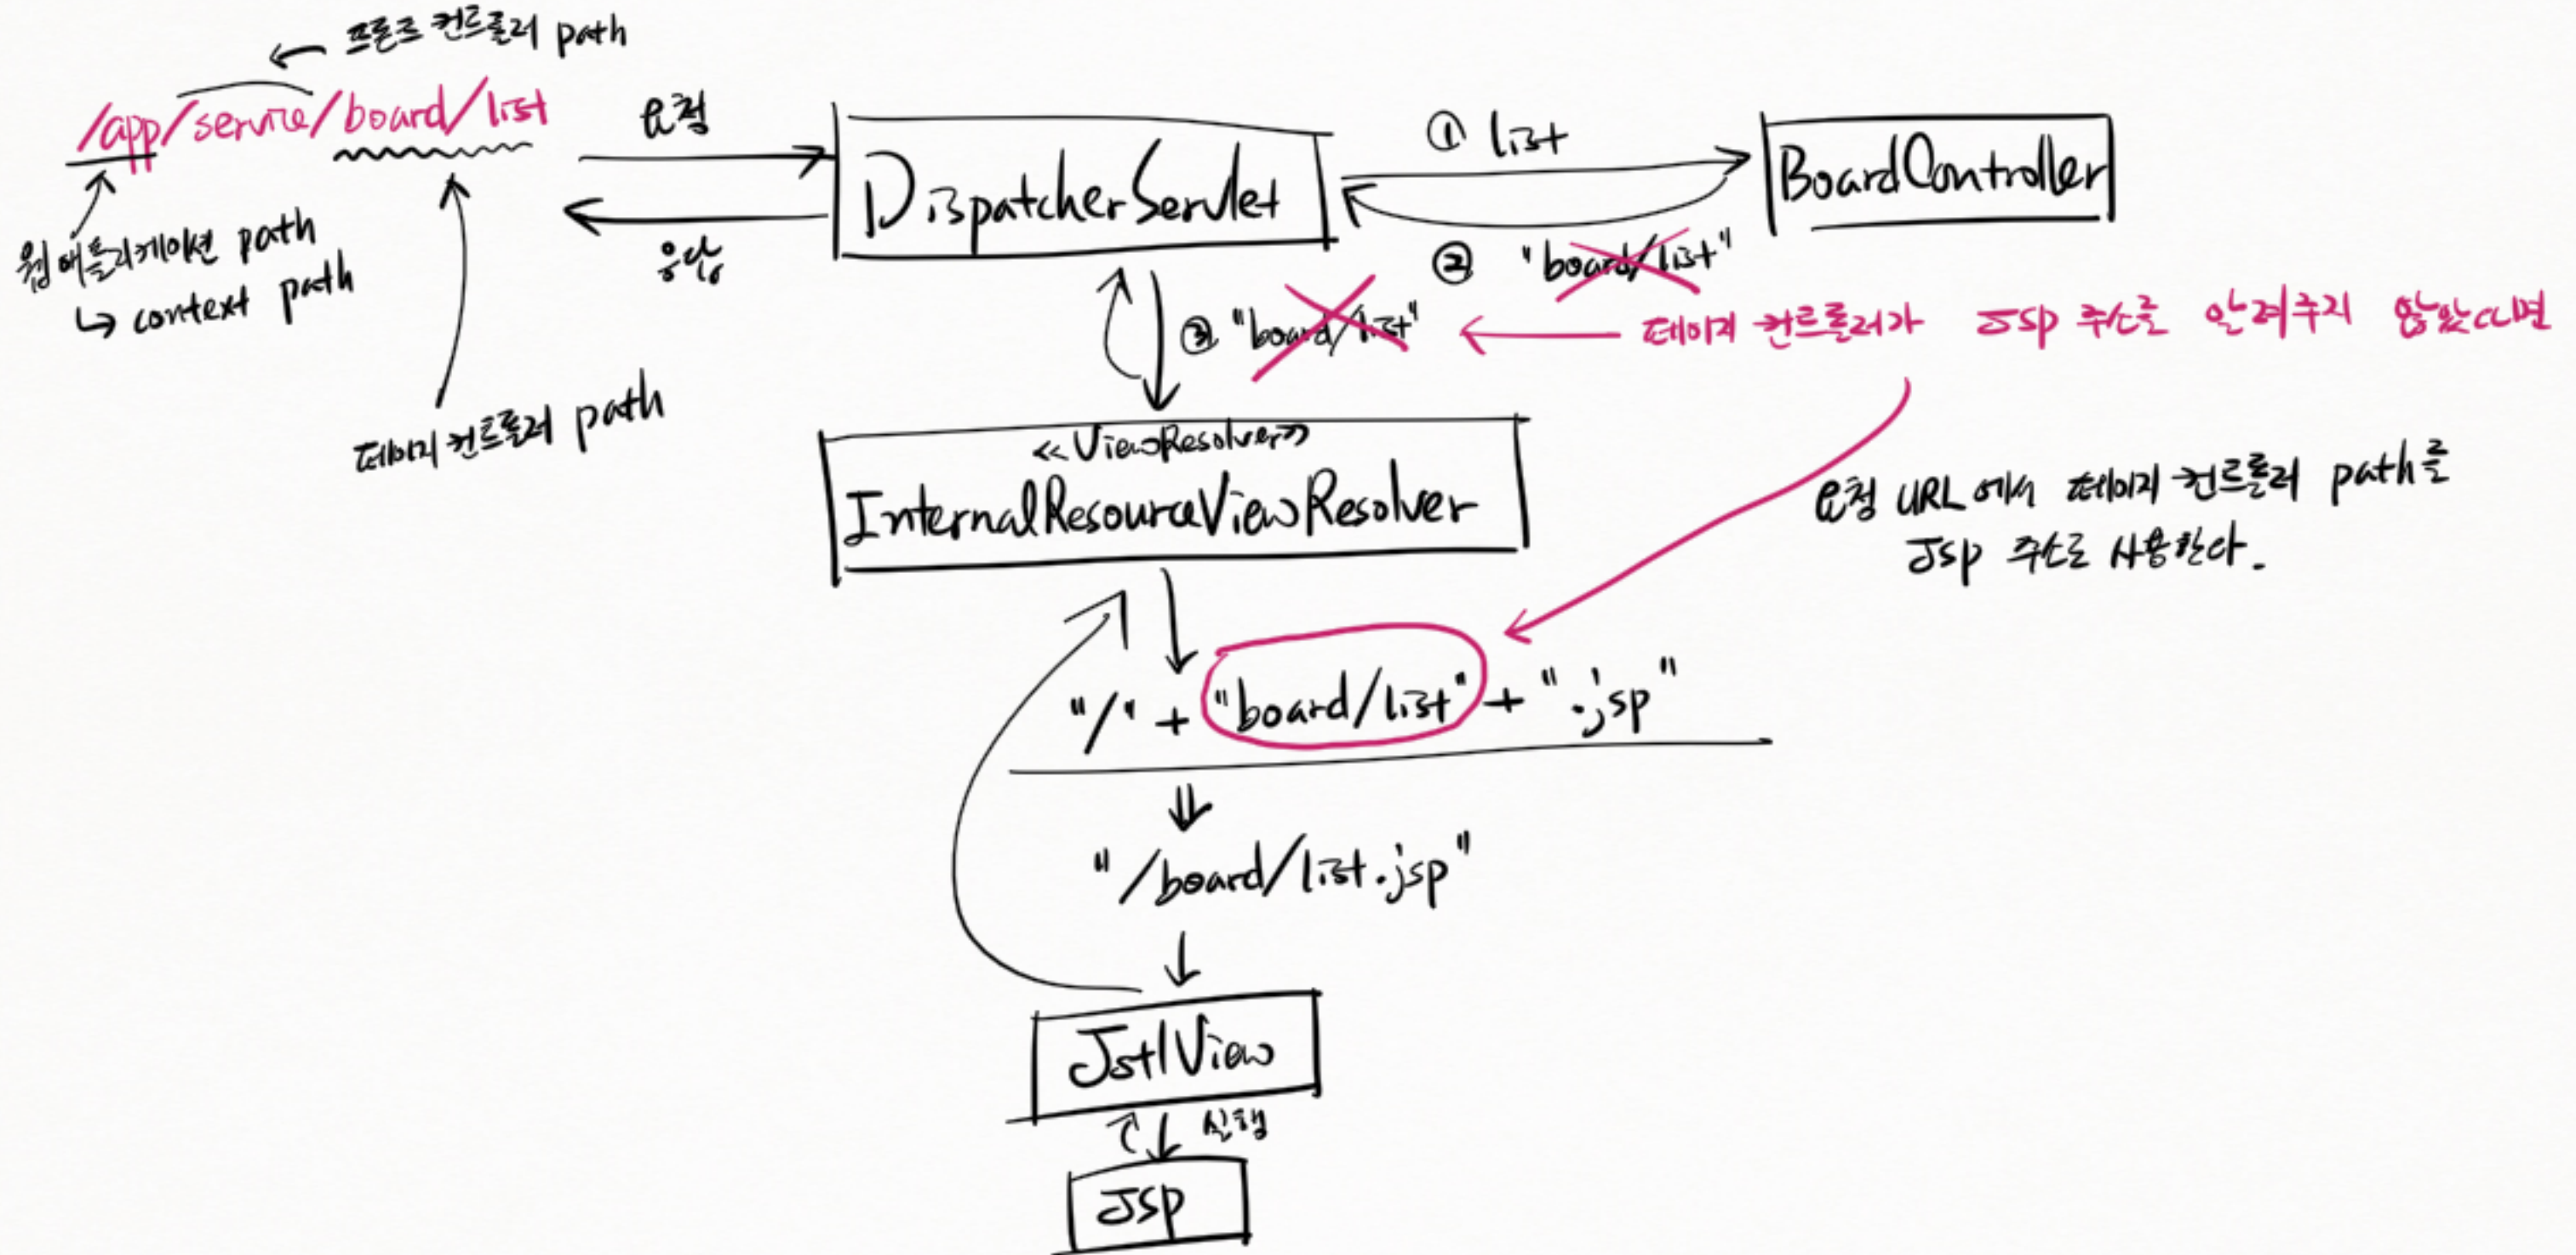 ← 프론트 컨트롤러 path
/app/service/board/list
웹 애플리케이션 path
↳ context path
페이지 컨트롤러 path
요청
응답
DispatcherServlet
① list
② "board/list"
BoardController
③ "board/list"
← 페이지 컨트롤러가 JSP 주소를 알려주지 않았다면
요청 URL에서 페이지 컨트롤러 path를
JSP 주소로 사용한다.
<<ViewResolver>>
InternalResourceViewResolver
"/" + "board/list" + ".jsp"
"/board/list.jsp"
JstlView
실행
JSP